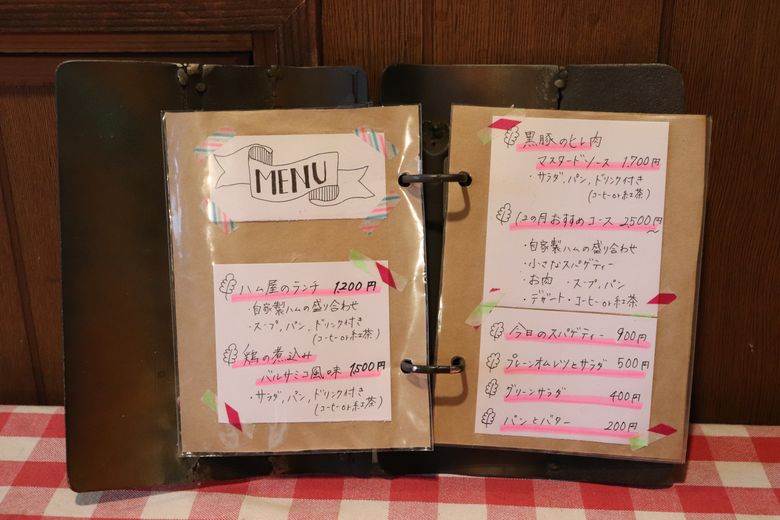 MENU
ハム屋のランチ 1,200円
・自家製ハムの盛り合わせ
・スープ,パン,ドリンク付き
(コーヒーor紅茶)
鶏の煮込み
バルサミコ風味 1,500円
・サラダ,パン,ドリンク付き
(コーヒーor紅茶)
黒豚のヒレ肉
マスタードソース 1,700円
・サラダ,パン,ドリンク付き
(コーヒーor紅茶)
12の月おすすめコース 2,500円〜
・自家製ハムの盛り合わせ
・小さなスパゲティー
・お肉 ・スープ,パン
・デザート・コーヒーor紅茶
今日のスパゲティー 900円
プレーンオムレツとサラダ 500円
グリーンサラダ 400円
パンとバター 200円